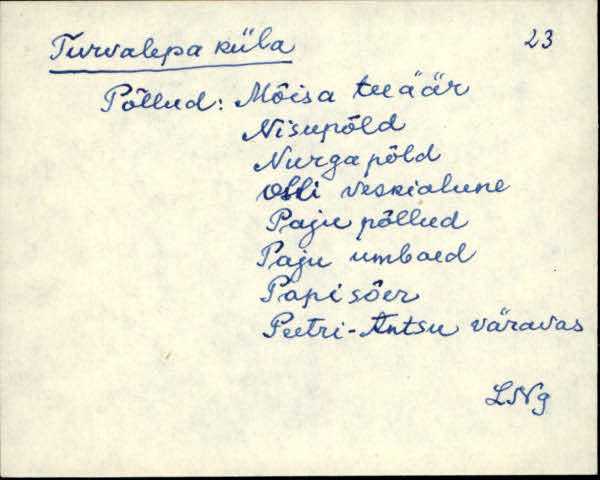 Turvalepa küla 23
Põllud: Mõisa teeäär
Nisupõld
Nurgapõld
Olli veskialune
Paju põllud
Paju umbaed
Papi sõer
Peetri-Antsu väravas
LNg